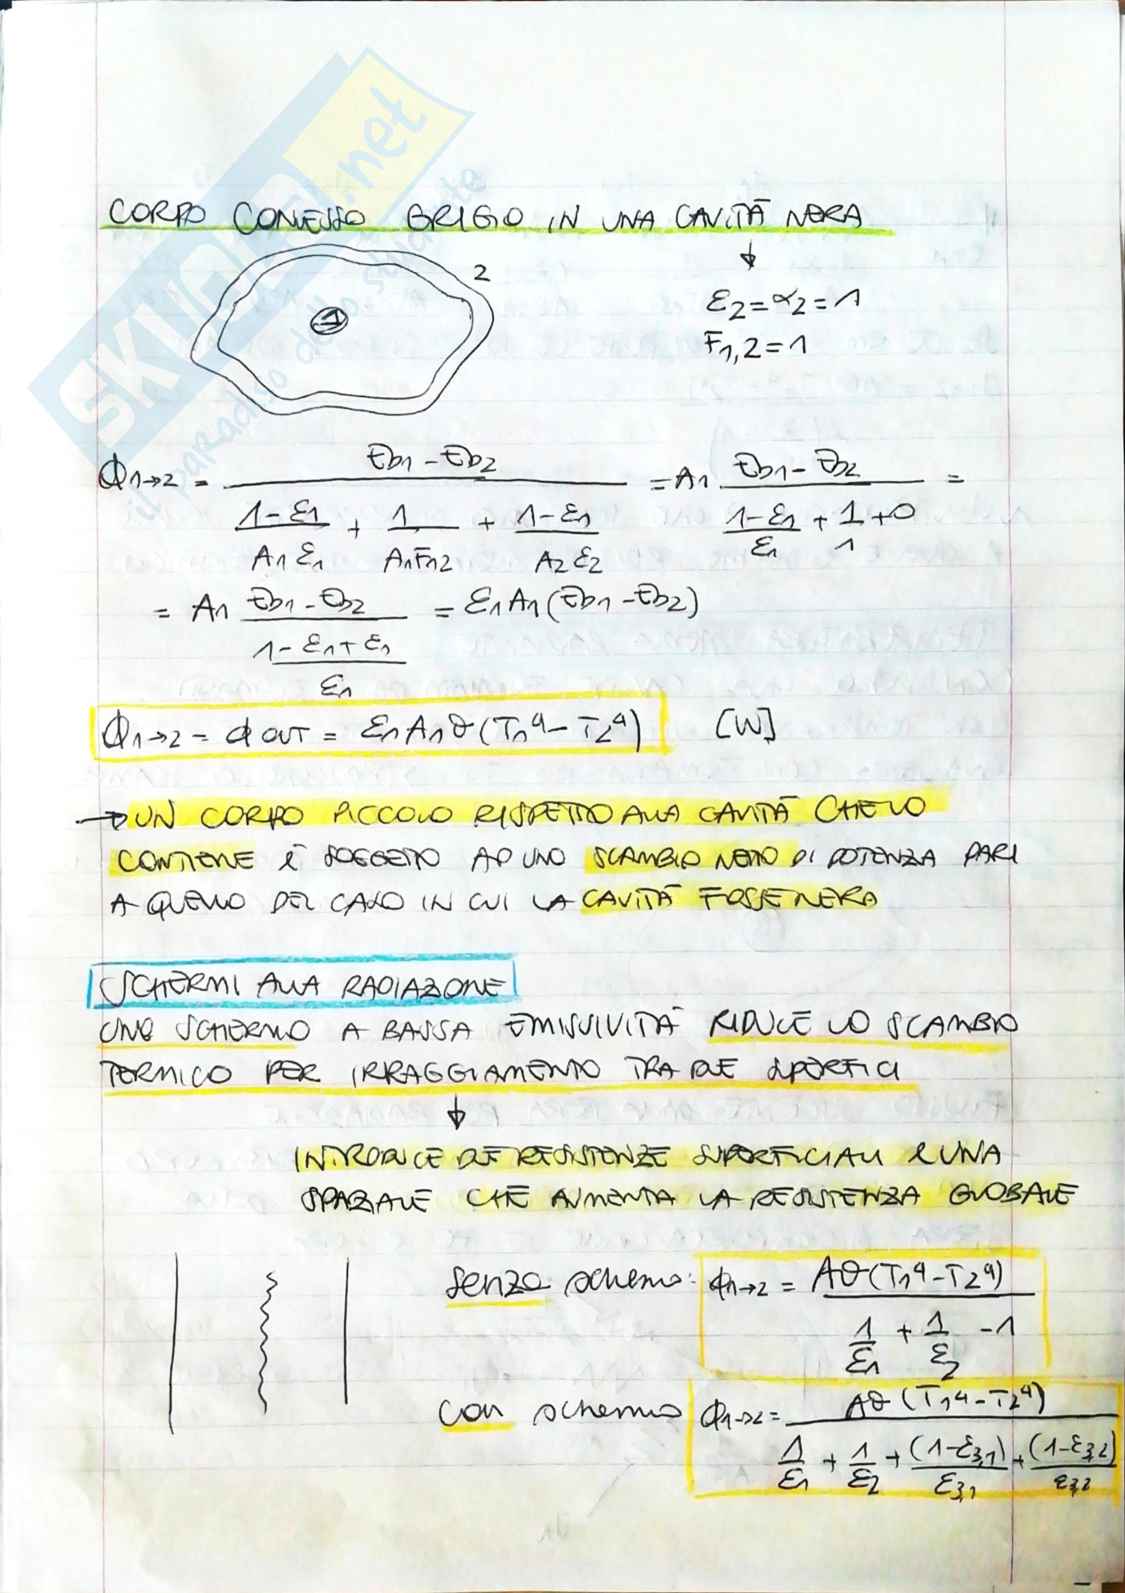 CORPO CONVESSO GRIGIO IN UNA CAVITÀ NERA
2
1
↓
ε2 = α2 = 1
F1,2 = 1
Φ1→2 = Eb1 - Eb2 / (1-ε1 / A1 ε1 + 1 / A1F12 + 1-ε1 / A2 ε2) = A1 Eb1 - Eb2 / (1-ε1 / ε1 + 1/1 + 0) =
= A1 Eb1 - Eb2 / (1-ε1+ε1 / ε1) = ε1 A1 (Eb1 - Eb2)
Φ1→2 = Φ OUT = ε1 A1 σ (T1⁴ - T2⁴) [W]
→ UN CORPO PICCOLO RISPETTO ALLA CAVITÀ CHE LO
CONTIENE È SOGGETTO AD UNO SCAMBIO NETTO DI POTENZA PARI
A QUELLO DEL CASO IN CUI LA CAVITÀ FOSSE NERA
SCHERMI ALLA RADIAZIONE
UNO SCHERMO A BASSA EMISSIVITÀ RIDUCE LO SCAMBIO
TERMICO PER IRRAGGIAMENTO TRA DUE SUPERFICI
↓
INTRODUCE DUE RESISTENZE SUPERFICIALI E UNA
SPAZIALE CHE AUMENTA LA RESISTENZA GLOBALE
Senza schermo: Φ1→2 = Aσ(T1⁴ - T2⁴) / (1/ε1 + 1/ε2 - 1)
Con schermo Φ1→2 = Aσ (T1⁴ - T2⁴) / (1/ε1 + 1/ε2 + (1-ε3,1)/ε3,1 + (1-ε3,2)/ε3,2)
SKUOLA.net
il paradiso dello studente